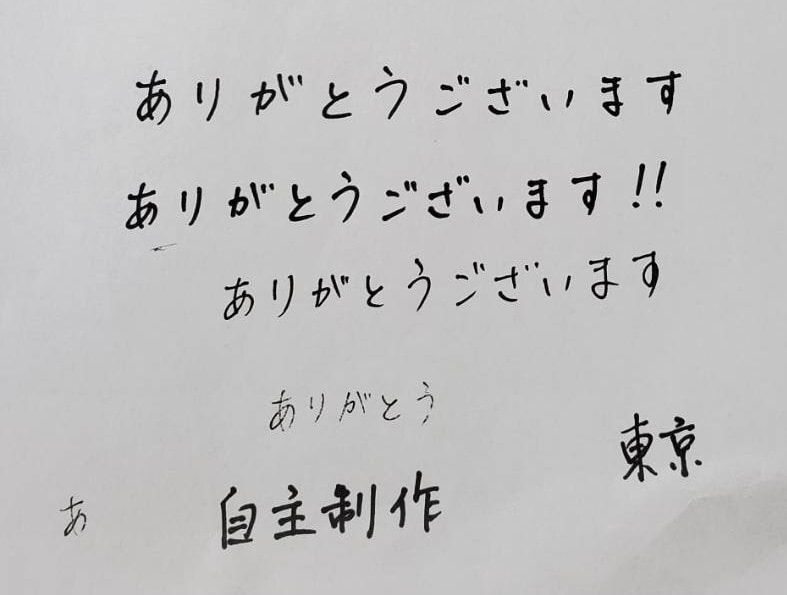 ありがとうございます
ありがとうございます!!
ありがとうございます
ありがとう
東京
あ
自主制作